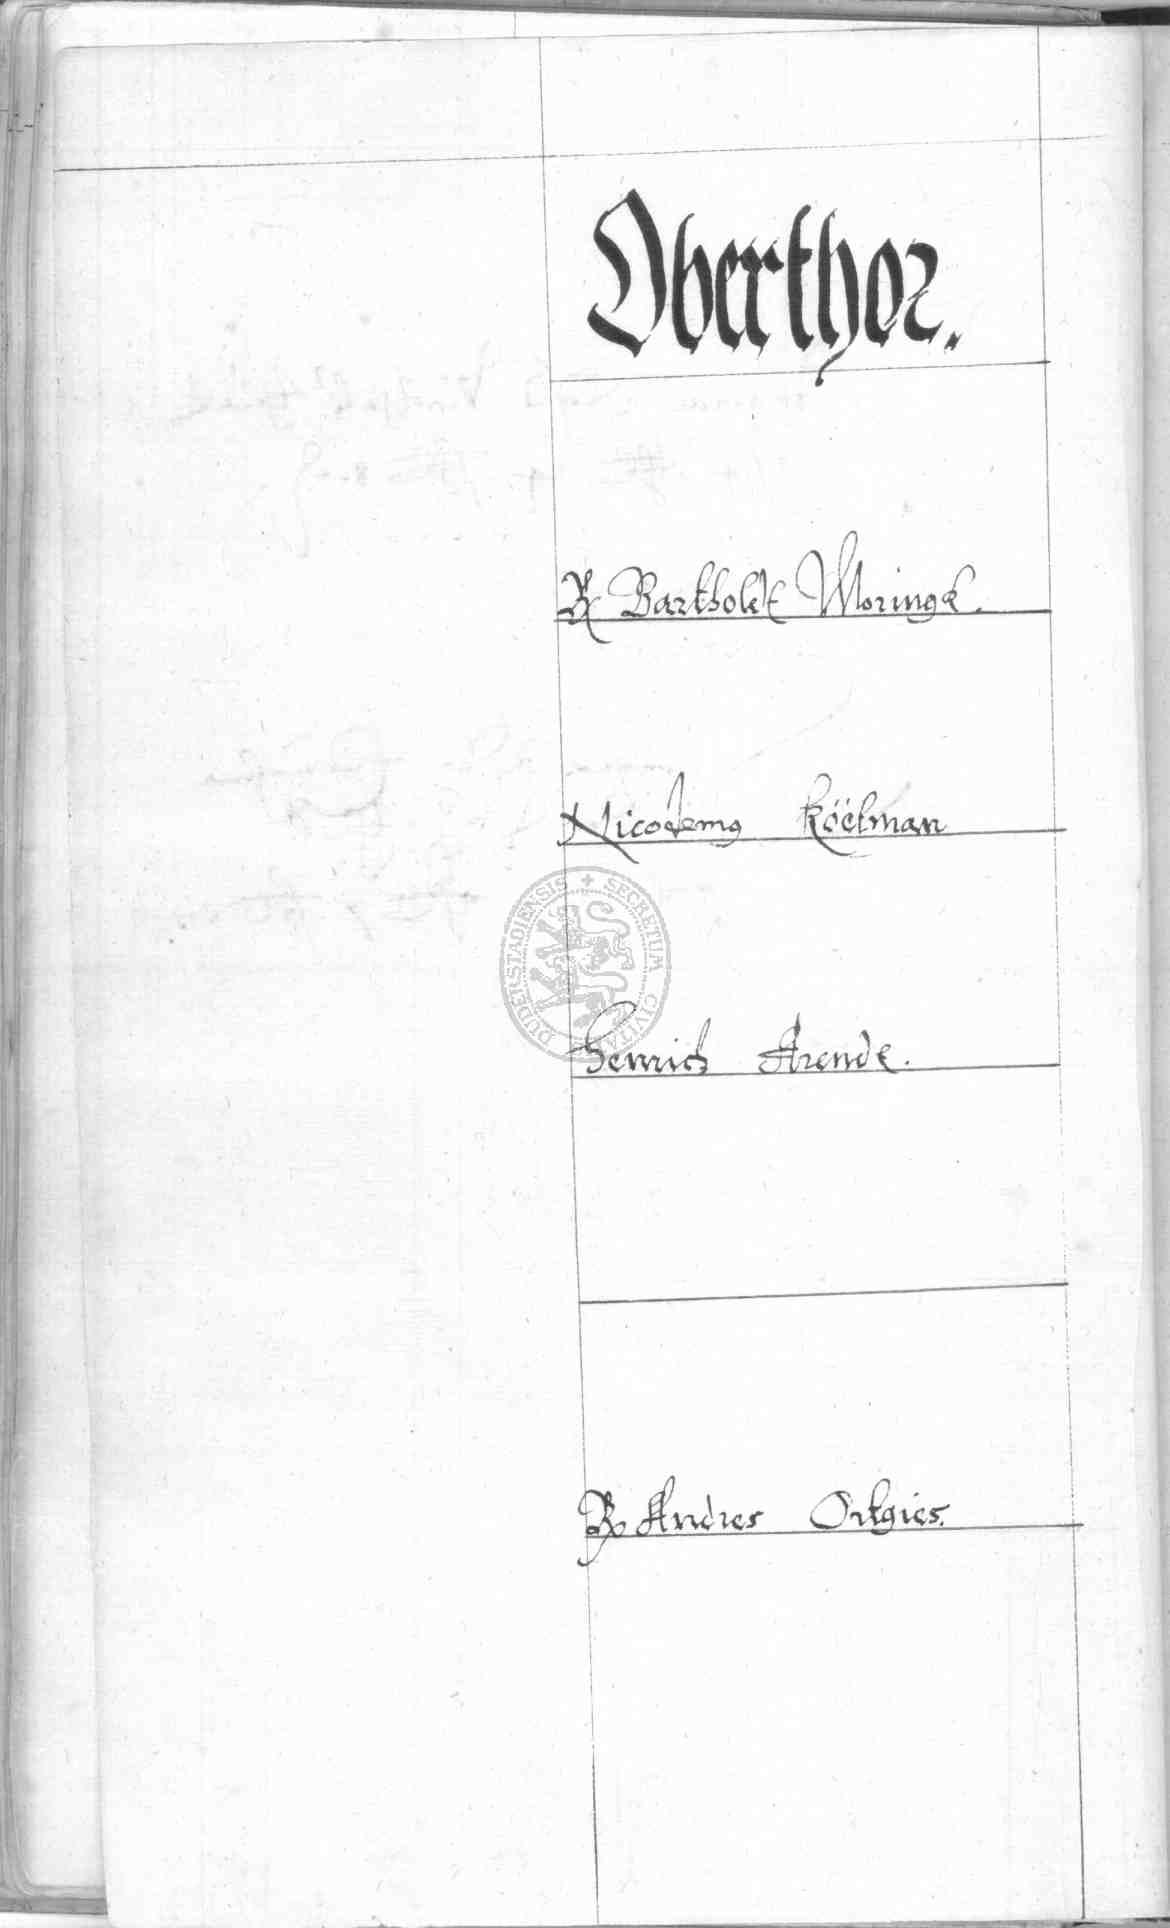 Oberthor.
R Bartholdt Moringk.
Nicodemg Köelman
DUDERSTADIENSIS + SECRETUM CIVITA
Henrich Arendt.
R Andres Ortgies.